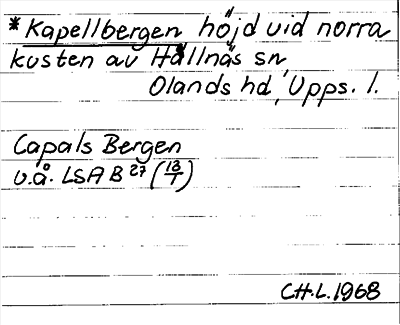 *Kapellbergen höjd vid norra
kusten av Hållnäs sn,
Olands hd, Upps. l.
Capals Bergen
u.å. LSA B 27 (13/1)
C.H.L. 1968